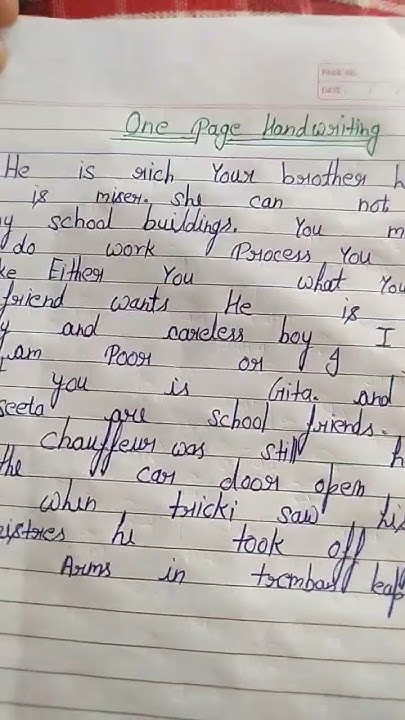 PAGE NO.
DATE: / /
One Page Handwriting
He is rich Your brother h
is miser. she can not
y school buildings. You m
do work Process You
ke Either You what You
friend wants He is
y and careless boy I
am Poor or I
you is Gita. and
seeta are school friends.
chauffeur was still h
the car door open
when tricki saw his
istres he took off
Arms in tromball leap